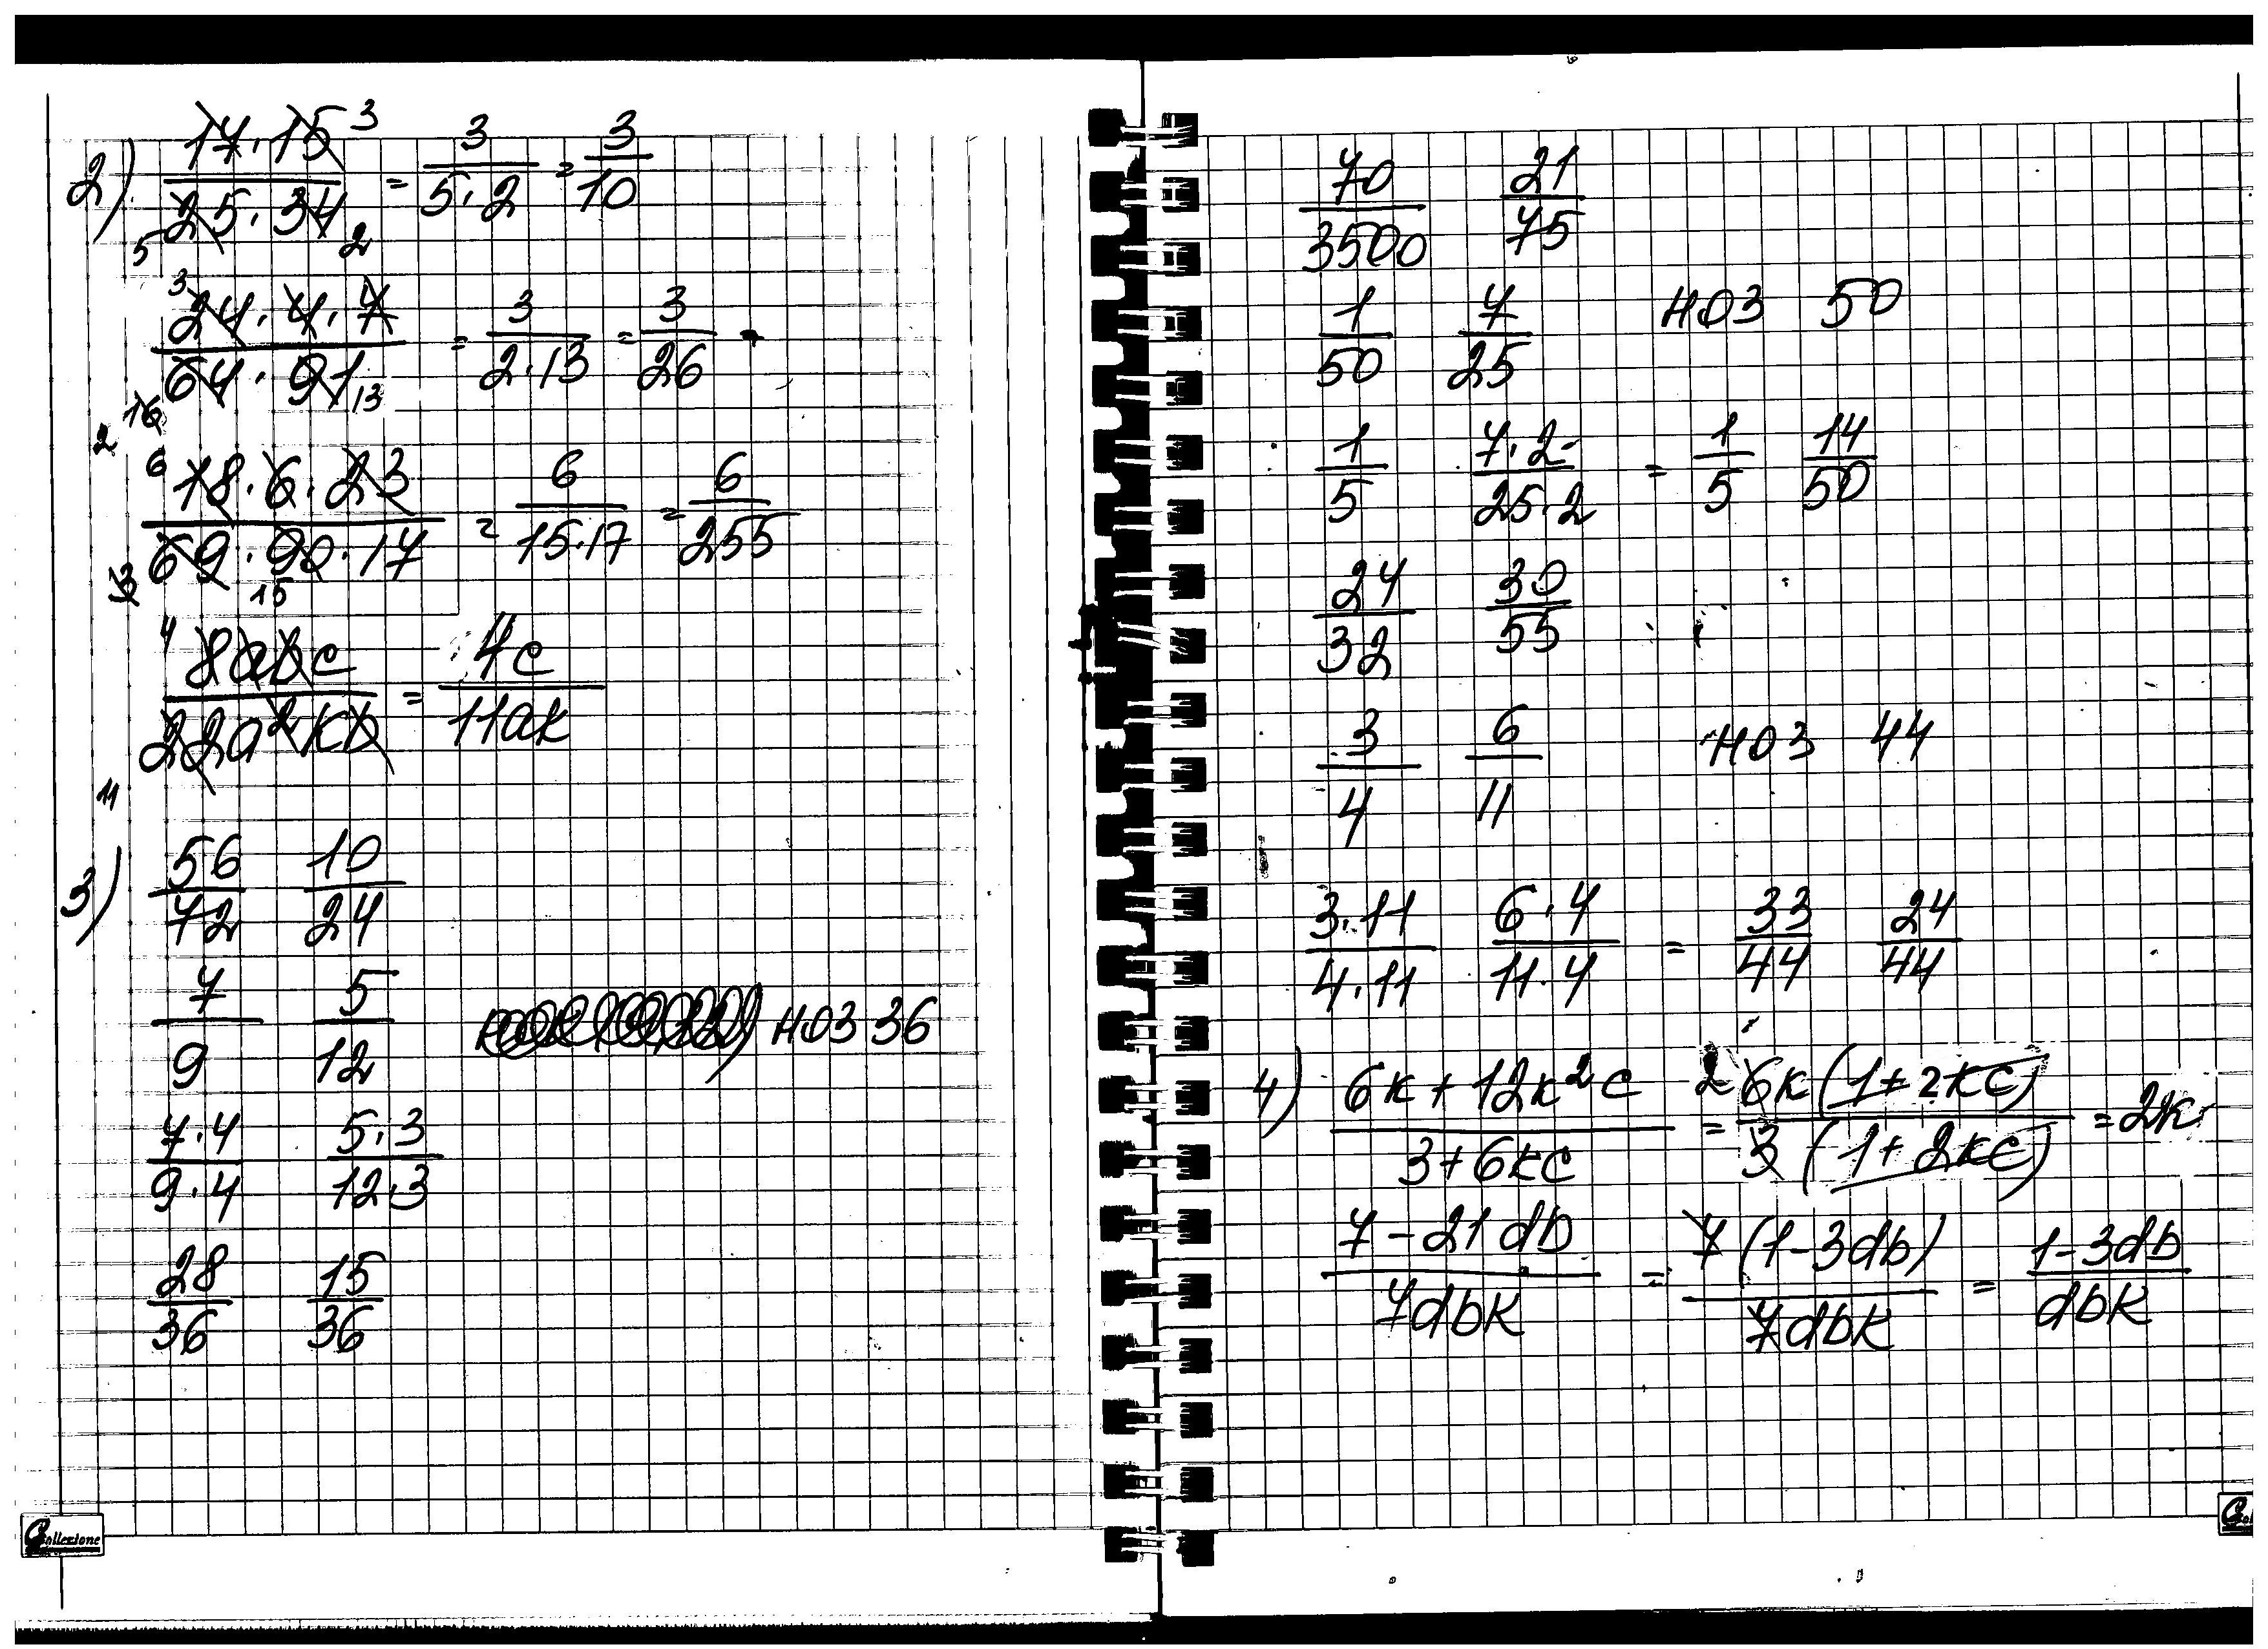 2) 17·15 3 / 5 25·34 2 = 3/(5·2) = 3/10
3 24·4·7 / 64·91 13 = 3/(2·13) = 3/26
16
2
6 18·6·23 / 69·90·17 = 6/(15·17) = 6/255
3 15
4 8abc / 22a²kb = 4c/11ak
11
3) 56/72 10/24
7/9 5/12 НОЗ 36
7·4/9·4 5·3/12·3
28/36 15/36
Collezione
70/3500 21/75
1/50 7/25 НОЗ 50
1/5 7·2/25·2 = 1/5 14/50
24/32 30/55
3/4 6/11 НОЗ 44
3·11/4·11 6·4/11·4 = 33/44 24/44
4) (6k+12k²c)/(3+6kc) = 2 6k(1+2kc)/3(1+2kc) = 2k
(7-21db)/7dbk = 7(1-3db)/7dbk = (1-3db)/dbk